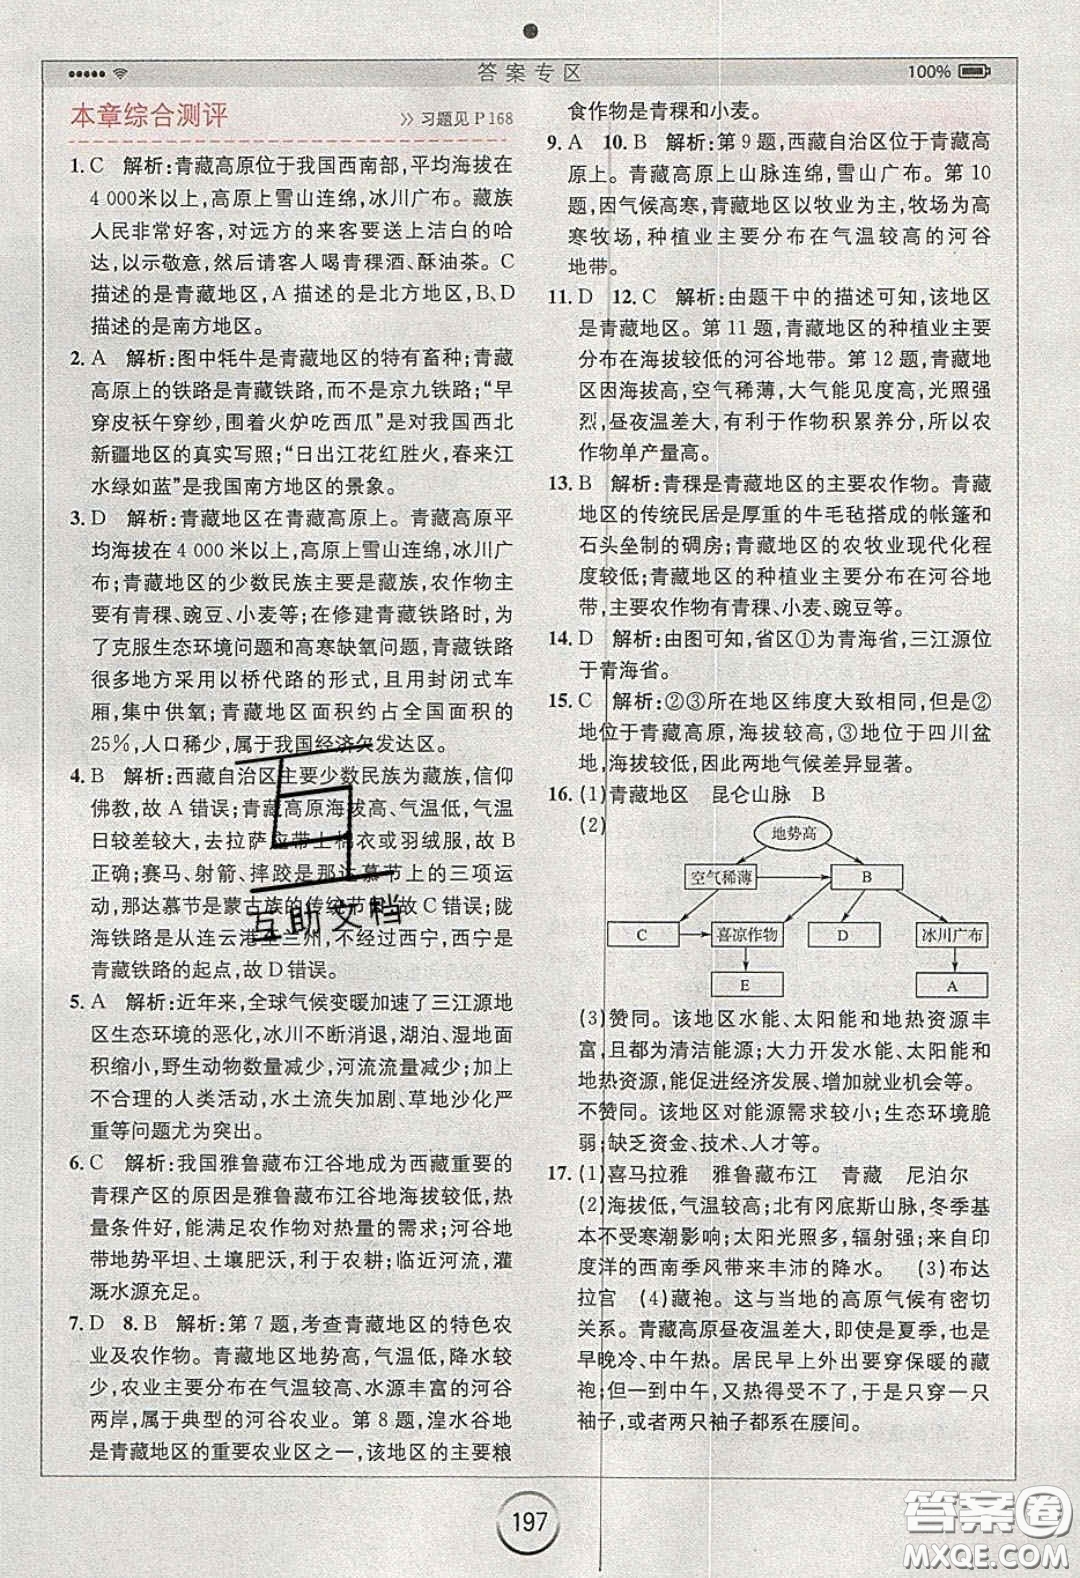 答案专区
100%
本章综合测评
>> 习题见 P 168
1. C 解析:青藏高原位于我国西南部,平均海拔在
4 000米以上,高原上雪山连绵,冰川广布。藏族
人民非常好客,对远方的来客要送上洁白的哈
达,以示敬意,然后请客人喝青稞酒、酥油茶。C
描述的是青藏地区,A 描述的是北方地区,B、D
描述的是南方地区。
2. A 解析:图中牦牛是青藏地区的特有畜种;青藏
高原上的铁路是青藏铁路,而不是京九铁路;“早
穿皮袄午穿纱,围着火炉吃西瓜”是对我国西北
新疆地区的真实写照;“日出江花红胜火,春来江
水绿如蓝”是我国南方地区的景象。
3. D 解析:青藏地区在青藏高原上。青藏高原平
均海拔在 4 000 米以上,高原上雪山连绵,冰川广
布;青藏地区的少数民族主要是藏族,农作物主
要有青稞、豌豆、小麦等;在修建青藏铁路时,为
了克服生态环境问题和高寒缺氧问题,青藏铁路
很多地方采用以桥代路的形式,且用封闭式车
厢,集中供氧;青藏地区面积约占全国面积的
25%,人口稀少,属于我国经济欠发达区。
4. B 解析:西藏自治区主要少数民族为藏族,信仰
佛教,故 A 错误;青藏高原海拔高、气温低,气温
日较差较大,去拉萨应带上棉衣或羽绒服,故 B
正确;赛马、射箭、摔跤是那达慕节上的三项运
动,那达慕节是蒙古族的传统节日,故 C 错误;陇
海铁路是从连云港至兰州,不经过西宁,西宁是
青藏铁路的起点,故 D 错误。
5. A 解析:近年来,全球气候变暖加速了三江源地
区生态环境的恶化,冰川不断消退,湖泊、湿地面
积缩小,野生动物数量减少,河流流量减少;加上
不合理的人类活动,水土流失加剧、草地沙化严
重等问题尤为突出。
6. C 解析:我国雅鲁藏布江谷地成为西藏重要的
青稞产区的原因是雅鲁藏布江谷地海拔较低,热
量条件好,能满足农作物对热量的需求;河谷地
带地势平坦、土壤肥沃,利于农耕;临近河流,灌
溉水源充足。
7. D 8. B 解析:第 7 题,考查青藏地区的特色农
业及农作物。青藏地区地势高,气温低,降水较
少,农业主要分布在气温较高、降水较丰富的河谷
两岸,属于典型的河谷农业。第 8 题,湟水谷地
是青藏地区的重要农业区之一,该地区的主要粮
食作物是青稞和小麦。
9. A 10. B 解析:第 9 题,西藏自治区位于青藏高
原上。青藏高原上山脉连绵,雪山广布。第 10
题,因气候高寒,青藏地区以牧业为主,牧场为高
寒牧场,种植业主要分布在气温较高的河谷
地带。
11. D 12. C 解析:由题干中的描述可知,该地区
是青藏地区。第 11 题,青藏地区的种植业主要
分布在海拔较低的河谷地带。第 12 题,青藏地
区因海拔高,空气稀薄,大气能见度高,光照强
烈,昼夜温差大,有利于作物积累养分,所以农
作物单产量高。
13. B 解析:青稞是青藏地区的主要农作物。青藏
地区的传统民居是厚重的牛毛毡搭成的帐篷和
石头垒制的碉房;青藏地区的农牧业现代化程
度较低;青藏地区的种植业主要分布在河谷地
带,主要农作物有青稞、小麦、豌豆等。
14. D 解析:由图可知,省区①为青海省,三江源位
于青海省。
15. C 解析:②③所在地区纬度大致相同,但是②
地位于青藏高原,海拔较高,③地位于四川盆
地,海拔较低,因此两地气候差异显著。
16. (1)青藏地区 昆仑山脉 B
(2)
地势高
空气稀薄 B
C 喜凉作物 D 冰川广布
E A
(3)赞同。该地区水能、太阳能和地热资源丰
富,且都为清洁能源;大力开发水能、太阳能和
地热资源,能促进经济发展、增加就业机会等。
不赞同。该地区对能源需求较小;生态环境脆
弱;缺乏资金、技术、人才等。
17. (1)喜马拉雅 雅鲁藏布江 青藏 尼泊尔
(2)海拔低,气温较高;北有冈底斯山脉,冬季基
本不受寒潮影响;太阳光照多,辐射强;来自印
度洋的西南季风带来丰沛的降水。 (3)布达
拉宫 (4)藏袍。这与当地的高原气候有密切
关系。青藏高原昼夜温差大,即使是夏季,也是
早晚冷、中午热。居民早上外出要穿保暖的藏
袍;但一到中午,又热得受不了,于是只穿一只
袖子,或者两只袖子都系在腰间。
互助文档
197
答案圈
MXQE.COM